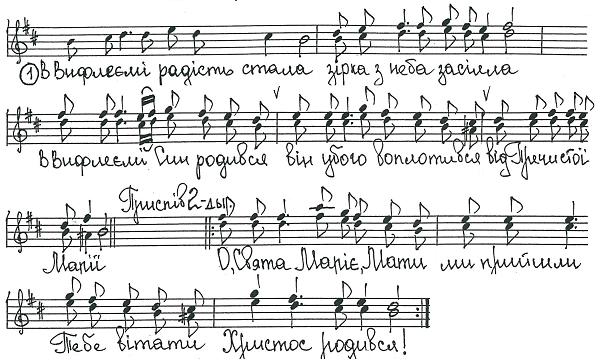 ① В Вифлеємі радість стала зірка з неба засіяла
В Вифлеємі Син родився він убого воплотився від Пречистої
Приспів 2-ды:
Марії О, Свята Маріє, Мати ми прийшли
Тебе вітати Христос родився!